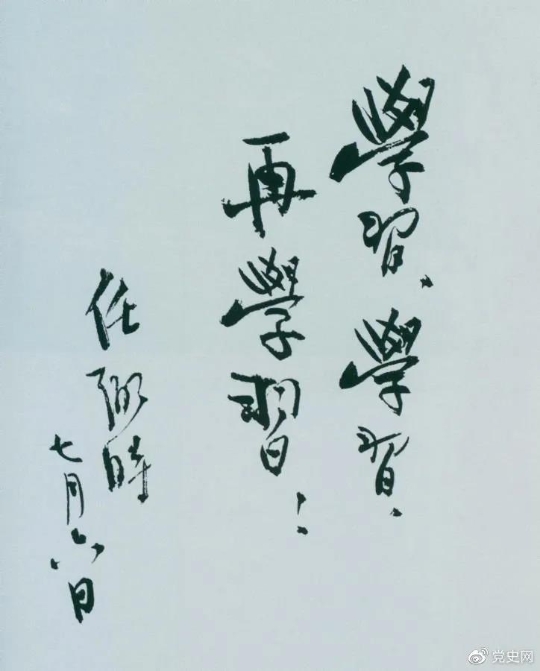 學習、學習.
再學習！
任弼時
七月六日
党史网